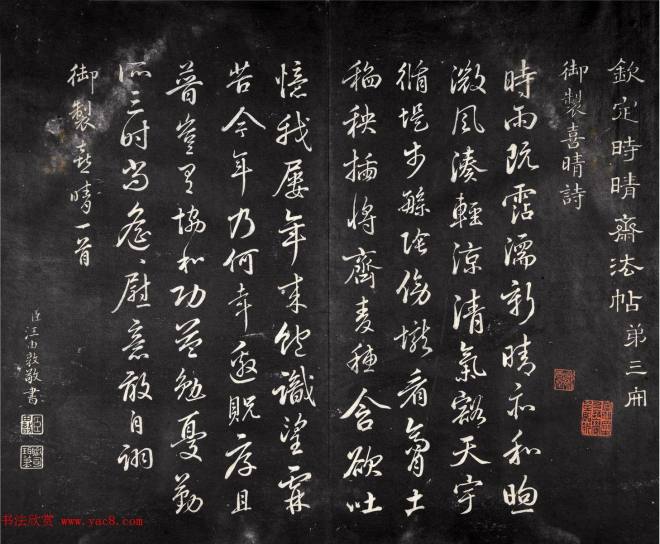 欽定時晴齋法帖第三冊
御製喜晴詩
時雨既霑濡新晴亦和煦
微風湊輕涼清氣豁天宇
循堤步緜陰傍壠看膏土
秧插將齊麥穗含欲吐
憶我屢年來飽識望霖
苦今年乃何幸邀貺存且
普豈異協和功益勉憂勤
所三时尚詹〻慰意敢自詡
御製喜晴一首
臣汪由敦敬書
书法欣赏 www.yac8.com